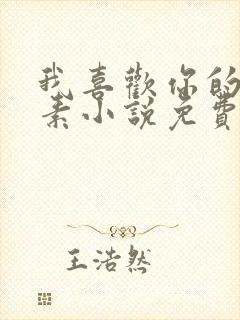 我喜歡你的
素小說免費
王浩然